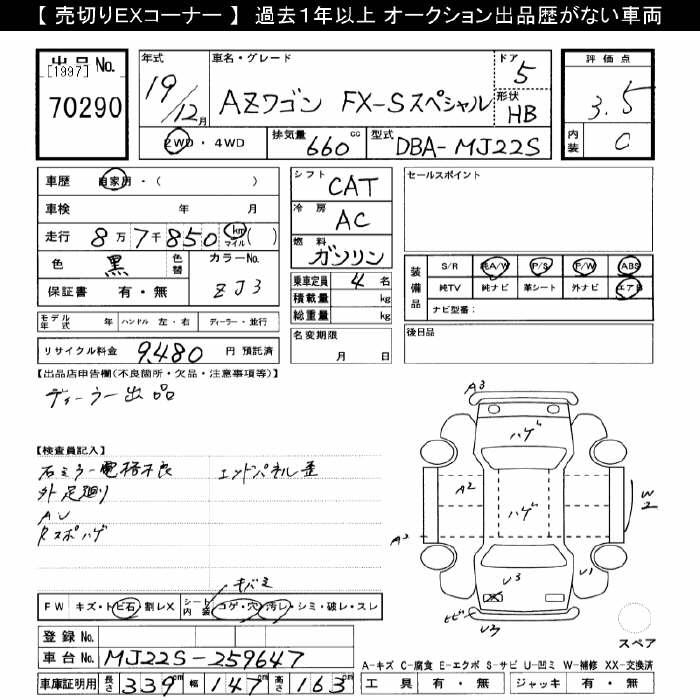 【 売切りEXコーナー 】 過去1年以上 オークション出品歴がない車両
出品 No.
[1997]
70290
年式 車名・グレード ドア 5
19/12月 AZワゴン FX-Sスペシャル 形状 HB
2WD・4WD 排気量 660 cc 型式 DBA-MJ22S
評価点
3.5
内装 C
車歴 自家用・( )
車検 年 月
走行 8万7千850 km マイル ( )
色 黒 色替 カラーNo. ZJ3
保証書 有・無
モデル年式 年 ハンドル 左・右 ディーラー・並行
リサイクル料金 9,480 円 預託済
シフト CAT
冷房 AC
燃料 ガソリン
乗車定員 4 名
積載量 kg
総重量 kg
名変期限 月 日
セールスポイント
装備品 S/R 純A/W P/S P/W ABS
純TV 純ナビ 革シート 外ナビ エアB
ナビ型番:
後日品
【出品店申告欄(不良箇所・欠品・注意事項等)】
ディーラー出品
【検査員記入】
右ミラー電格不良 エンドパネル歪
外足廻り
AU
Rスポハゲ
キバミ
FW キズ・トビ石・割レX シート内装 コゲ・穴・汚レ・シミ・破レ・スレ
登録No.
車台No. MJ22S-259647
車庫証明用 長さ 339cm 幅 147cm 高さ 163cm
A3
ハゲ
A2
ハゲ
W2
A2
U3
U1
X
ヒビ
U3
スペア
A-キズ C-腐食 E-エクボ S-サビ U-凹ミ W-補修 XX-交換済
工具 有・無 ジャッキ 有・無